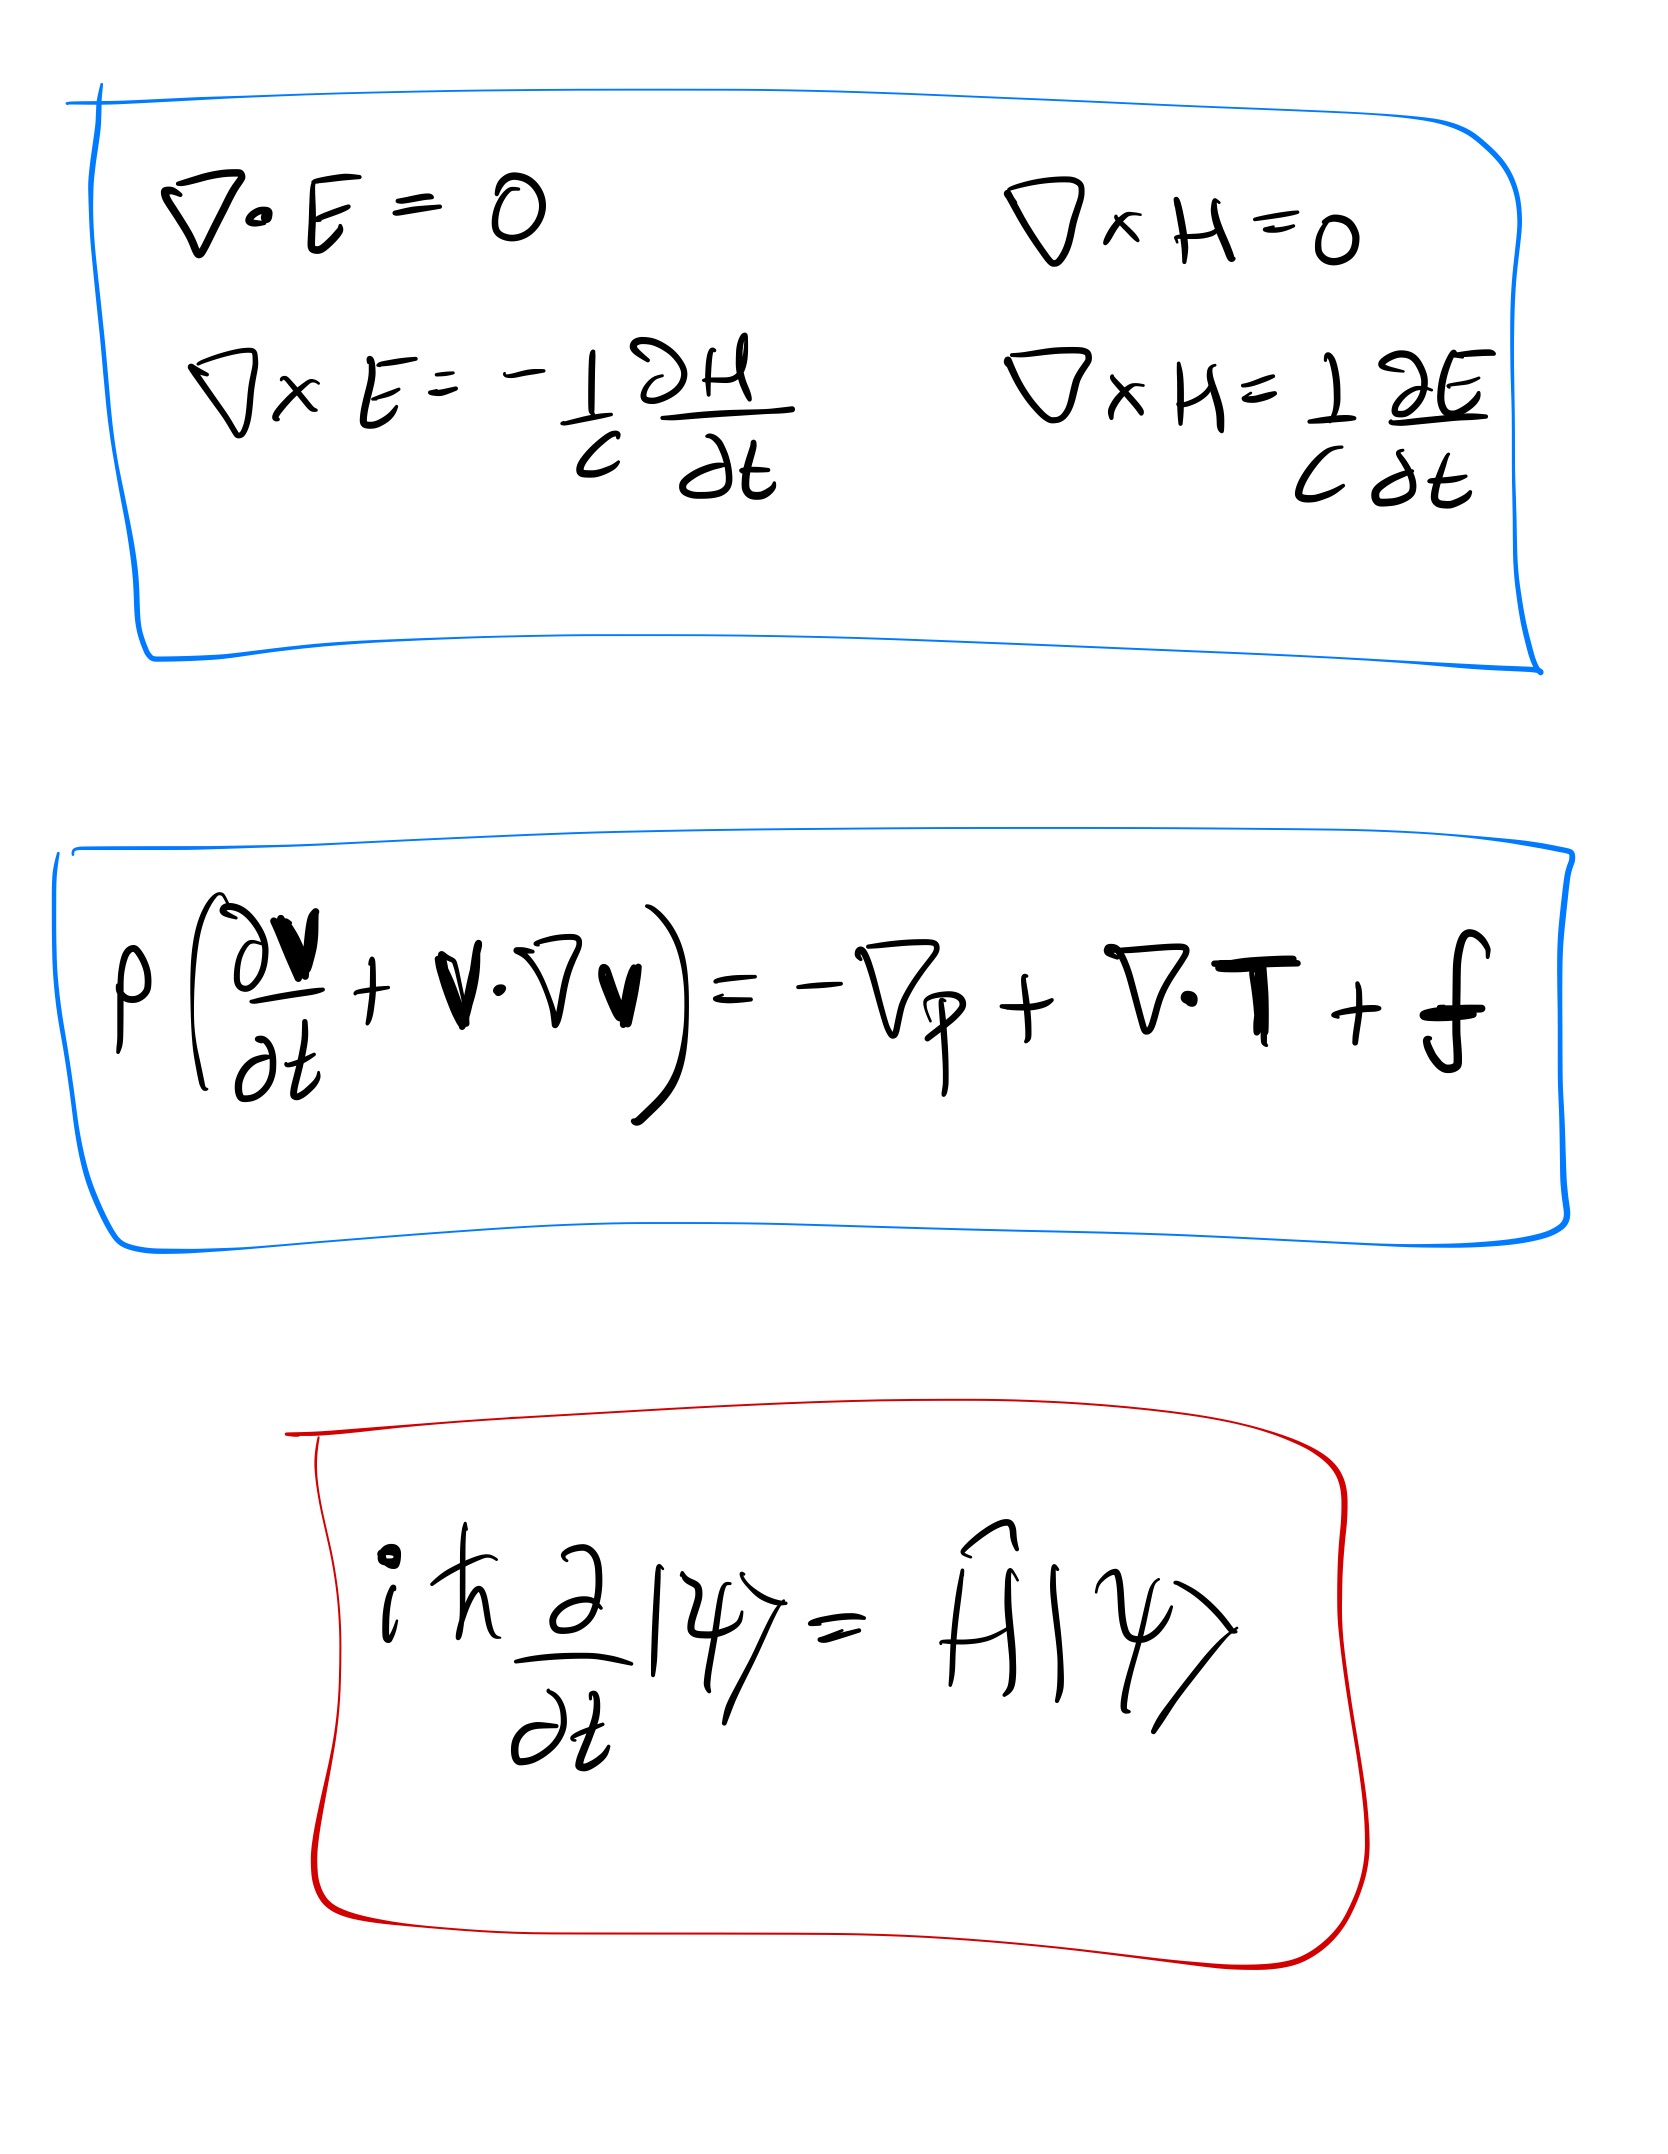 ∇·E = 0    ∇×H = 0
∇×E = -1/c ∂H/∂t    ∇×H = 1/c ∂E/∂t
ρ(∂v/∂t + v·∇v) = -∇p + ∇·T + f
iħ ∂/∂t |ψ⟩ = Ĥ|ψ⟩